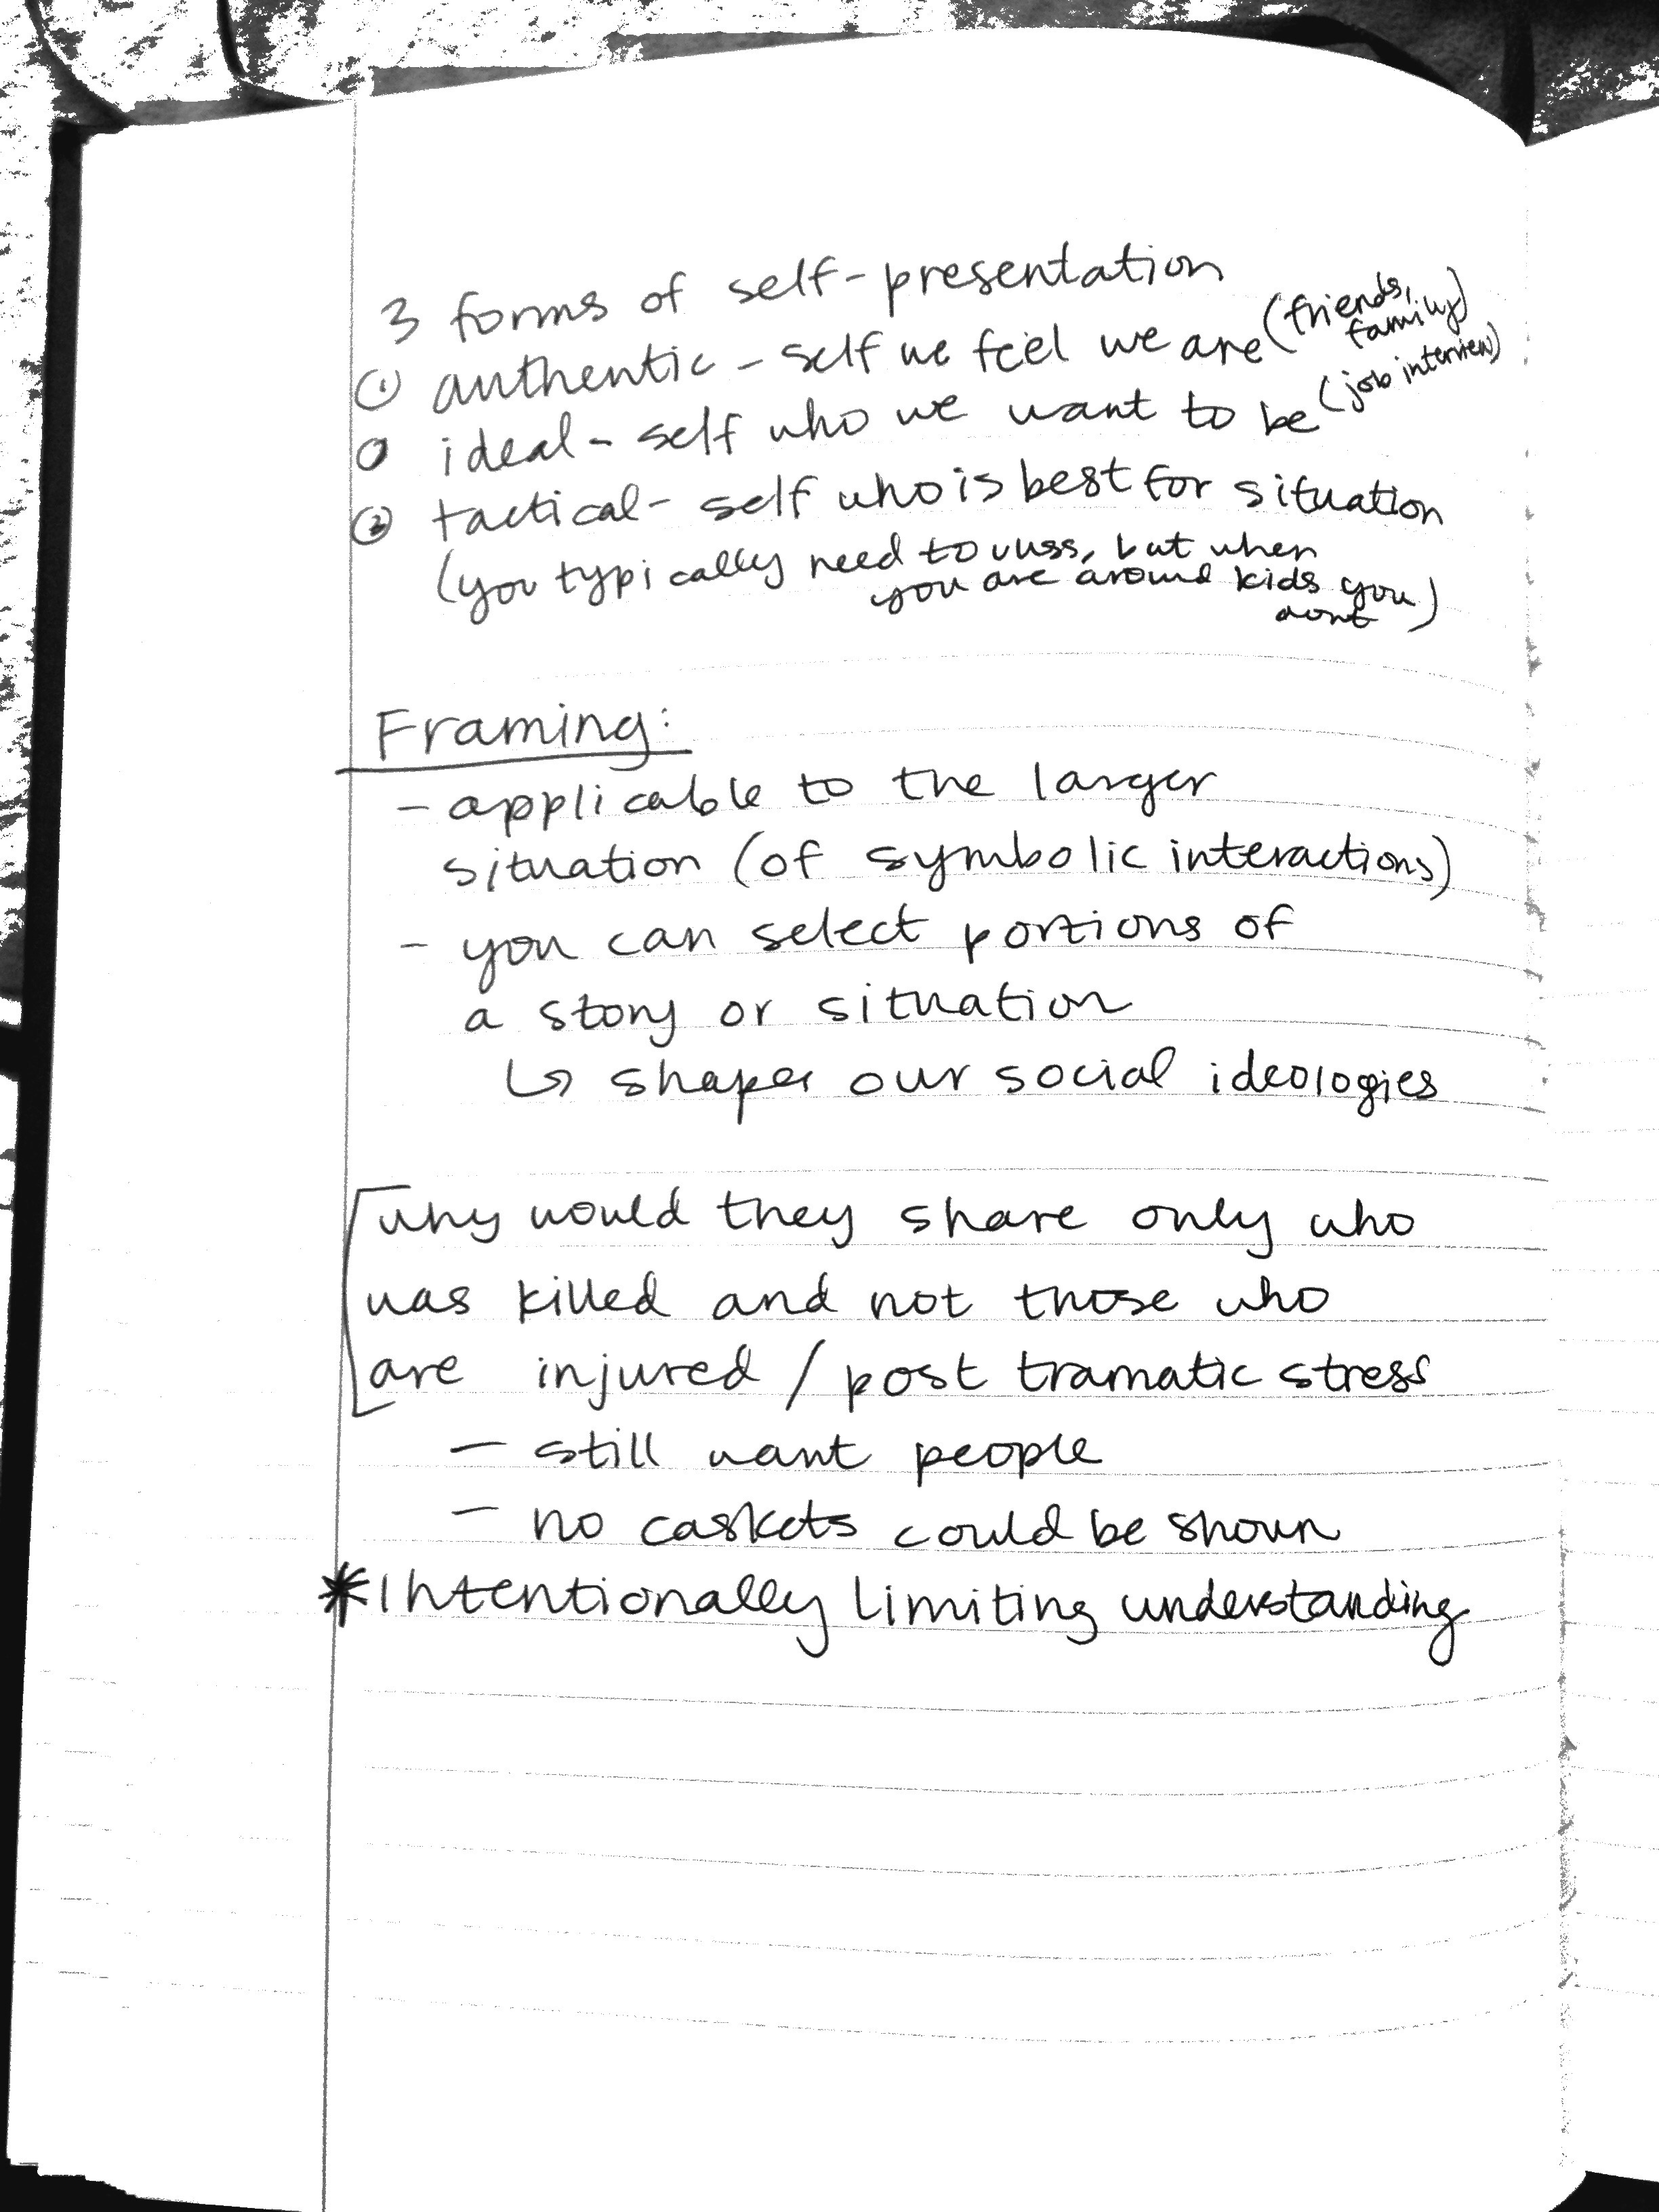 3 forms of self-presentation
① authentic - self we feel we are (friends, family)
ideal - self who we want to be (job interview)
③ tactical - self who is best for situation
(you typically need to cuss, but when
you are around kids you
dont)
Framing:
- applicable to the larger
situation (of symbolic interactions)
- you can select portions of
a story or situation
↳ shapes our social ideologies
why would they share only who
was killed and not those who
are injured / post tramatic stress
- still want people
- no caskets could be shown
* Intentionally limiting understanding